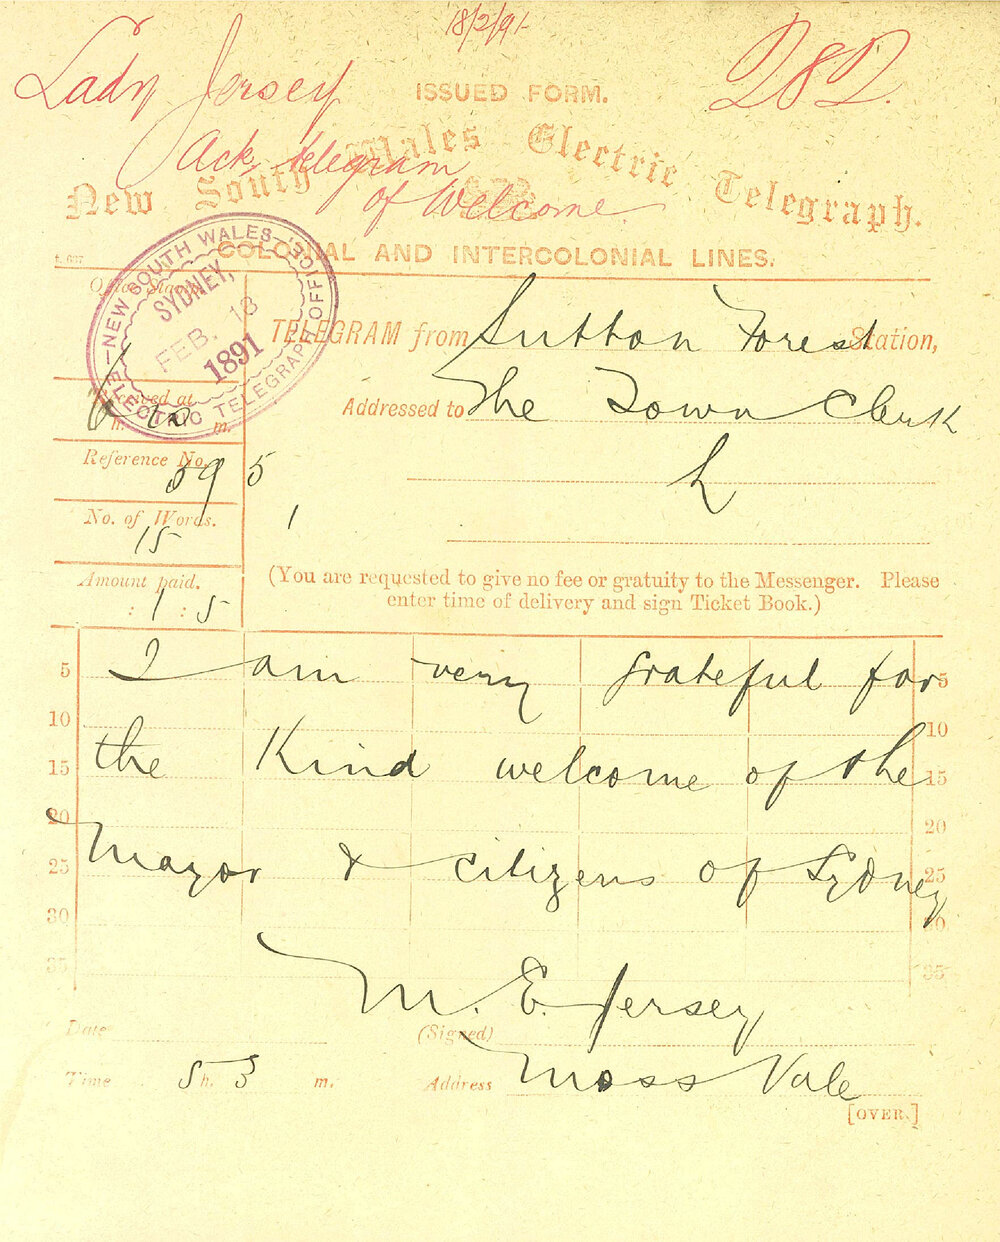 18/2/91
Lady Jersey
282.
ISSUED FORM.
Ack. telegram
of Welcome.
New South Wales Electric Telegraph.
COLONIAL AND INTERCOLONIAL LINES.
NEW SOUTH WALES OFFICE
SYDNEY,
FEB. 18
1891
ELECTRIC TELEGRAPH
TELEGRAM from Sutton Forest Station,
Received at
h. m.
Addressed to The Town Clerk
Reference No.
395
No. of Words.
15
Amount paid.
: 1 : 5
(You are requested to give no fee or gratuity to the Messenger. Please
enter time of delivery and sign Ticket Book.)
5 I am very grateful for 5
10 10
15 the Kind welcome of the 15
20 20
25 Mayor & citizens of Sydney 25
30 30
35 35
M. E. Jersey
Date
(Signed)
Time 5 h. 3 m. Address Moss Vale
[OVER.]